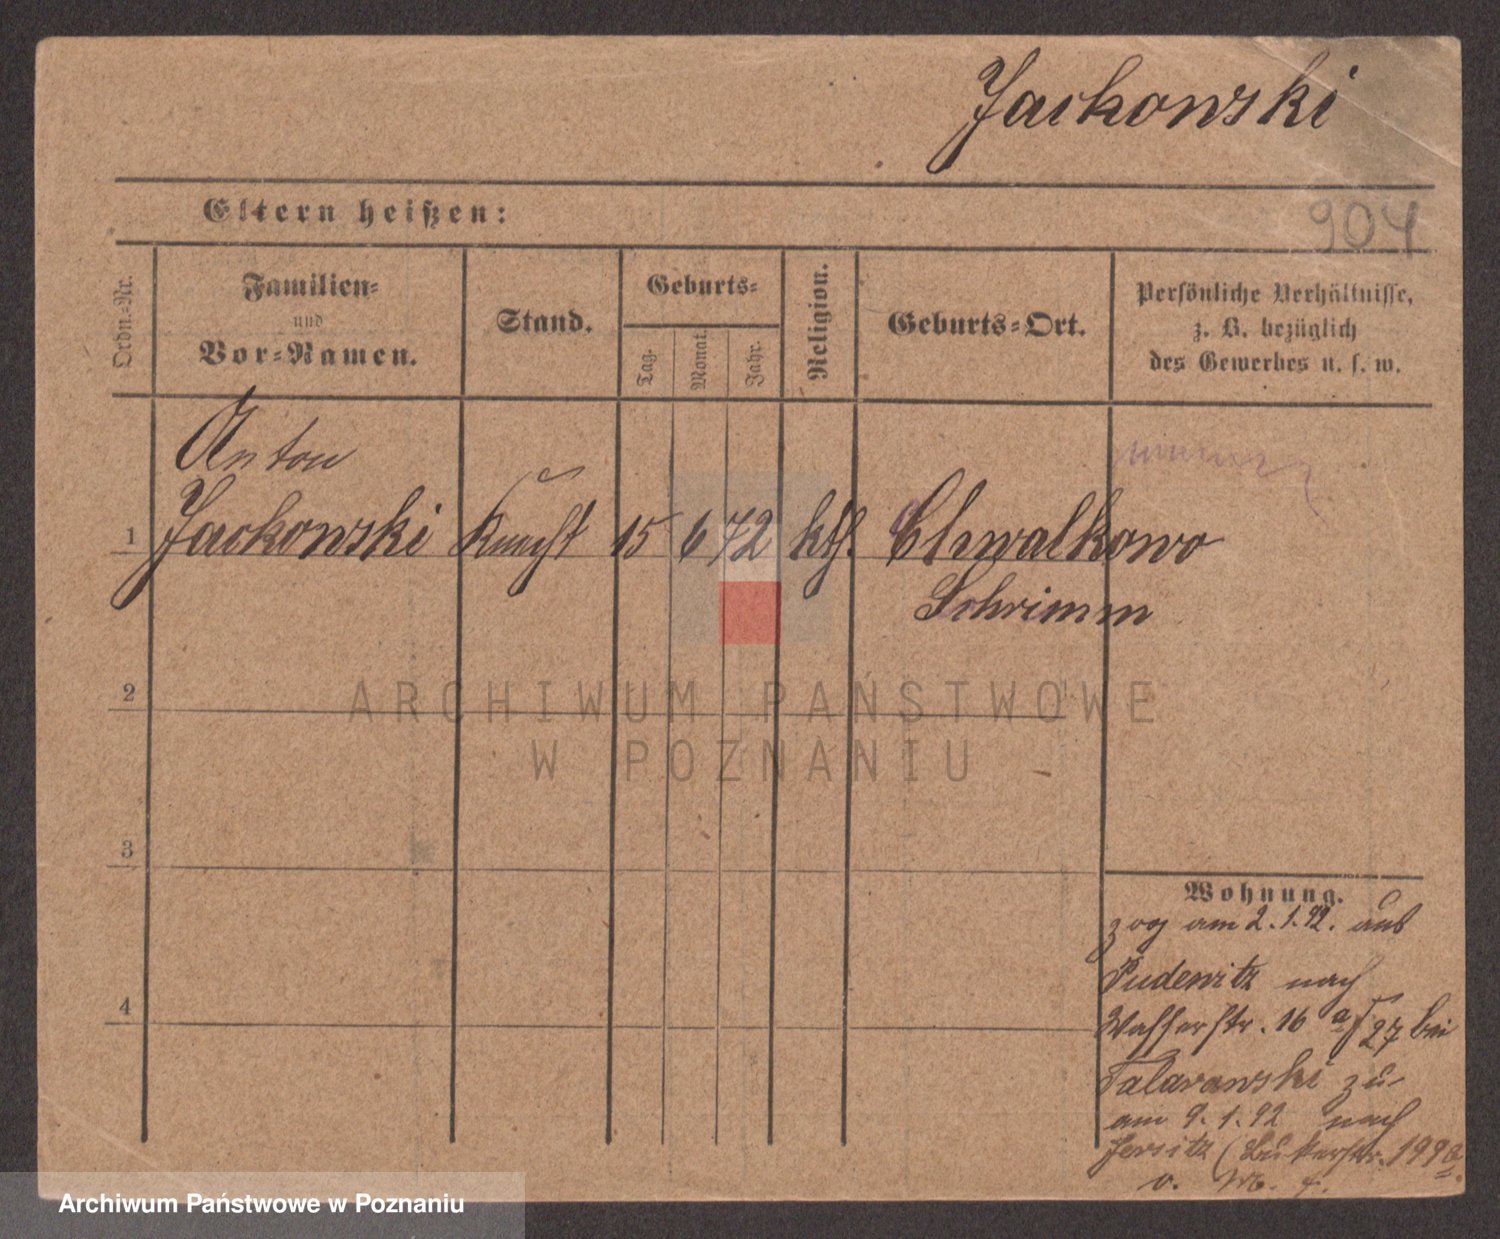 Jackowski
Eltern heißen:
904
Ordn.-Nr.
Familien-
und
Vor-Namen.
Stand.
Geburts-
Tag.
Monat.
Jahr.
Religion.
Geburts-Ort.
Persönliche Verhältnisse,
z. B. bezüglich
des Gewerbes u. s. w.
Anton
1 Jackowski Knecht 15 6 72 kth. Chwalkowo
Schrimm
2
ARCHIWUM PAŃSTWOWE
W POZNANIU
3
Wohnung.
zog am 2.1.92. aus
Pudewitz nach
4
Wasserstr. 16 27 bei
Talarowski zu
am 9.1.92 nach
Jersitz
Archiwum Państwowe w Poznaniu